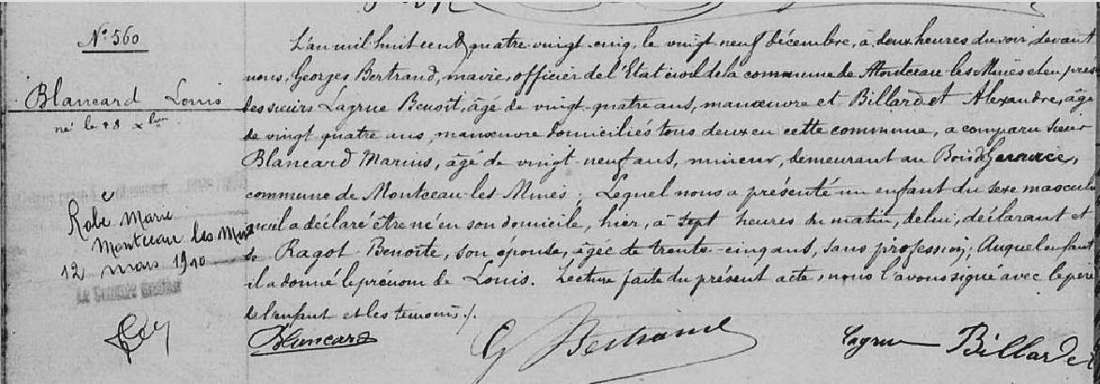 N° 560
Blancard Louis
né le 28 xbre
Robé Marie
Montceau les Mines
12 mars 1910
L'an mil huit cent quatre vingt cinq, le vingt neuf décembre, à deux heures du soir devant
nous, Georges Bertrand, maire, officier de l'Etat civil de la commune de Montceau-les-Mines et en prés
des sieurs Lagrue Benoît, âgé de vingt-quatre ans, manœuvre et Billardet Alexandre, âgé
de vingt quatre ans, manœuvre domiciliés tous deux en cette commune, a comparu sieur
Blancard Marius, âgé de vingt neuf ans, mineur, demeurant au Bois
commune de Montceau-les-Mines ; Lequel nous a présenté un enfant du sexe masculin
qu'il a déclaré être né en son domicile, hier, à sept heures du matin, de lui, déclarant et
de Ragot Benoîte, son épouse, âgée de trente-cinq ans, sans profession ; Auquel enfant
il a donné le prénom de Louis. Lecture faite du présent acte, nous l'avons signé avec le père
de l'enfant et les témoins ./.
Blancard G Bertrand Lagrue Billardet